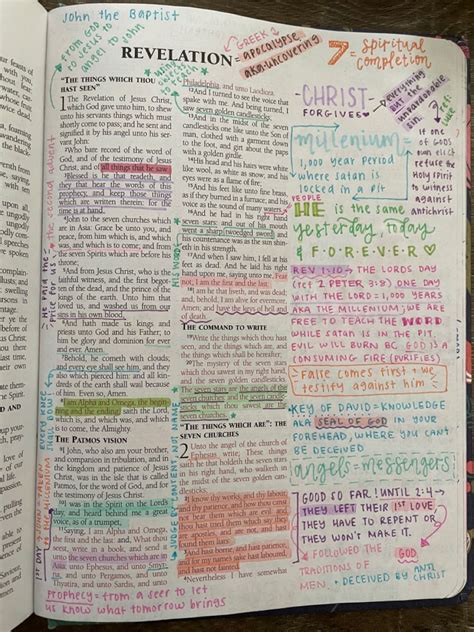 John the Baptist
REVELATION
GREEK
= apocalypse,
aka: uncovering
7 = spiritual
completion
FROM GOD
to Jesus to
angel to
John
"THE THINGS WHICH THOU
HAST SEEN"
1 The Revelation of Jesus Christ,
which God gave unto him, to shew
unto his servants things which must
shortly come to pass; and he sent and
signified it by his angel unto his ser-
vant John:
2 Who bare record of the word
of God, and of the testimony of Jesus
Christ, and of all things that he saw.
3 Blessed is he that readeth, and they
that hear the words of this
prophecy, and keep those things
which are written therein: for the
time is at hand.
4 John to the seven churches which
are in Asia: Grace be unto you, and
peace, from him which is, and which
was, and which is to come; and from
the seven Spirits which are before his
throne;
5 And from Jesus Christ, who is the
faithful witness, and the first begotten
of the dead, and the prince of the
kings of the earth. Unto him that
loved us, and washed us from our
sins in his own blood,
6 And hath made us kings and
priests unto God and his Father; to
him be glory and dominion for ever
and ever. Amen.
7 Behold, he cometh with clouds;
and every eye shall see him, and they
also which pierced him: and all kin-
dreds of the earth shall wail because
of him. Even so, Amen.
8 I am Alpha and Omega, the begin-
ning and the ending, saith the Lord,
which is, and which was, and which
is to come, the Almighty.
THE PATMOS VISION
9 I John, who also am your brother,
and companion in tribulation, and in
the kingdom and patience of Jesus
Christ, was in the isle that is called
Patmos, for the word of God, and for
the testimony of Jesus Christ.
10 I was in the Spirit on the Lord's day,
and heard behind me a great
voice, as of a trumpet,
11 Saying, I am Alpha and Omega,
the first and the last: and, What thou
seest, write in a book, and send it
unto the seven churches which are in
Asia; unto Ephesus, and unto Smyr-
na, and unto Pergamos, and unto
Thyatira, and unto Sardis, and unto
Philadelphia, and unto Laodicea.
12 And I turned to see the voice that
spake with me. And being turned, I
saw seven golden candlesticks;
13 And in the midst of the seven
candlesticks one like unto the Son of
man, clothed with a garment down
to the foot, and girt about the paps
with a golden girdle.
14 His head and his hairs were white
like wool, as white as snow; and his
eyes were as a flame of fire;
15 And his feet like unto fine brass,
as if they burned in a furnace; and his
voice as the sound of many waters.
16 And he had in his right hand
seven stars: and out of his mouth
went a sharp twoedged sword: and
his countenance was as the sun shin-
eth in his strength.
17 And when I saw him, I fell at his
feet as dead. And he laid his right
hand upon me, saying unto me, Fear
not; I am the first and the last:
18 I am he that liveth, and was dead;
and, behold, I am alive for evermore,
Amen; and have the keys of hell and
of death.
THE COMMAND TO WRITE
19 Write the things which thou hast
seen, and the things which are, and
the things which shall be hereafter;
20 The mystery of the seven stars
which thou sawest in my right hand,
and the seven golden candlesticks.
The seven stars are the angels of the
seven churches: and the seven candle-
sticks which thou sawest are the
seven churches.
"THE THINGS WHICH ARE": THE
SEVEN CHURCHES
2 Unto the angel of the church of
Ephesus write; These things saith
he that holdeth the seven stars in his
right hand, who walketh in the midst
of the seven golden candlesticks;
2 I know thy works, and thy labour,
and thy patience, and how thou canst
not bear them which are evil: and
thou hast tried them which say they
are apostles, and are not, and hast
found them liars:
3 And hast borne, and hast patience,
and for my name's sake hast laboured,
and hast not fainted.
4 Nevertheless I have somewhat
HIS WORD
JUDGE BY CONTENT, NOT NAME
the second advent
CHRIST
FORGIVES
everything
but the
unpardonable
sin.
if one
of GODS
own elect
refuse the
Holy spirit
to witness
against
antichrist
millenium =
1,000 year period
where satan is
locked in a pit
PEOPLE
HE is the same
yesterday, today
& FOREVER
REV 1:10 → THE LORDS DAY
(ref 2 PETER 3:8) ONE DAY
WITH THE LORD = 1,000 YEARS
AKA THE MILLENIUM; WE ARE
FREE TO TEACH THE WORD
WHILE SATAN IS IN THE PIT.
EVIL WILL BURN BC GOD IS A
CONSUMING FIRE (PURIFIES)
False comes first + we
testify against him
KEY OF DAVID = KNOWLEDGE
AKA SEAL OF GOD IN YOUR
FOREHEAD, WHERE YOU CANT
BE DECEIVED
angels = messengers
GOOD SO FAR! UNTIL 2:4 →
THEY LEFT THEIR 1ST LOVE,
THEY HAVE TO REPENT OR
THEY WON'T MAKE IT.
GOD
FOLLOWED THE
TRADITIONS OF
MEN + DECEIVED BY ANTI
CHRIST
Prophecy = from a seer to let
us know what tomorrow brings